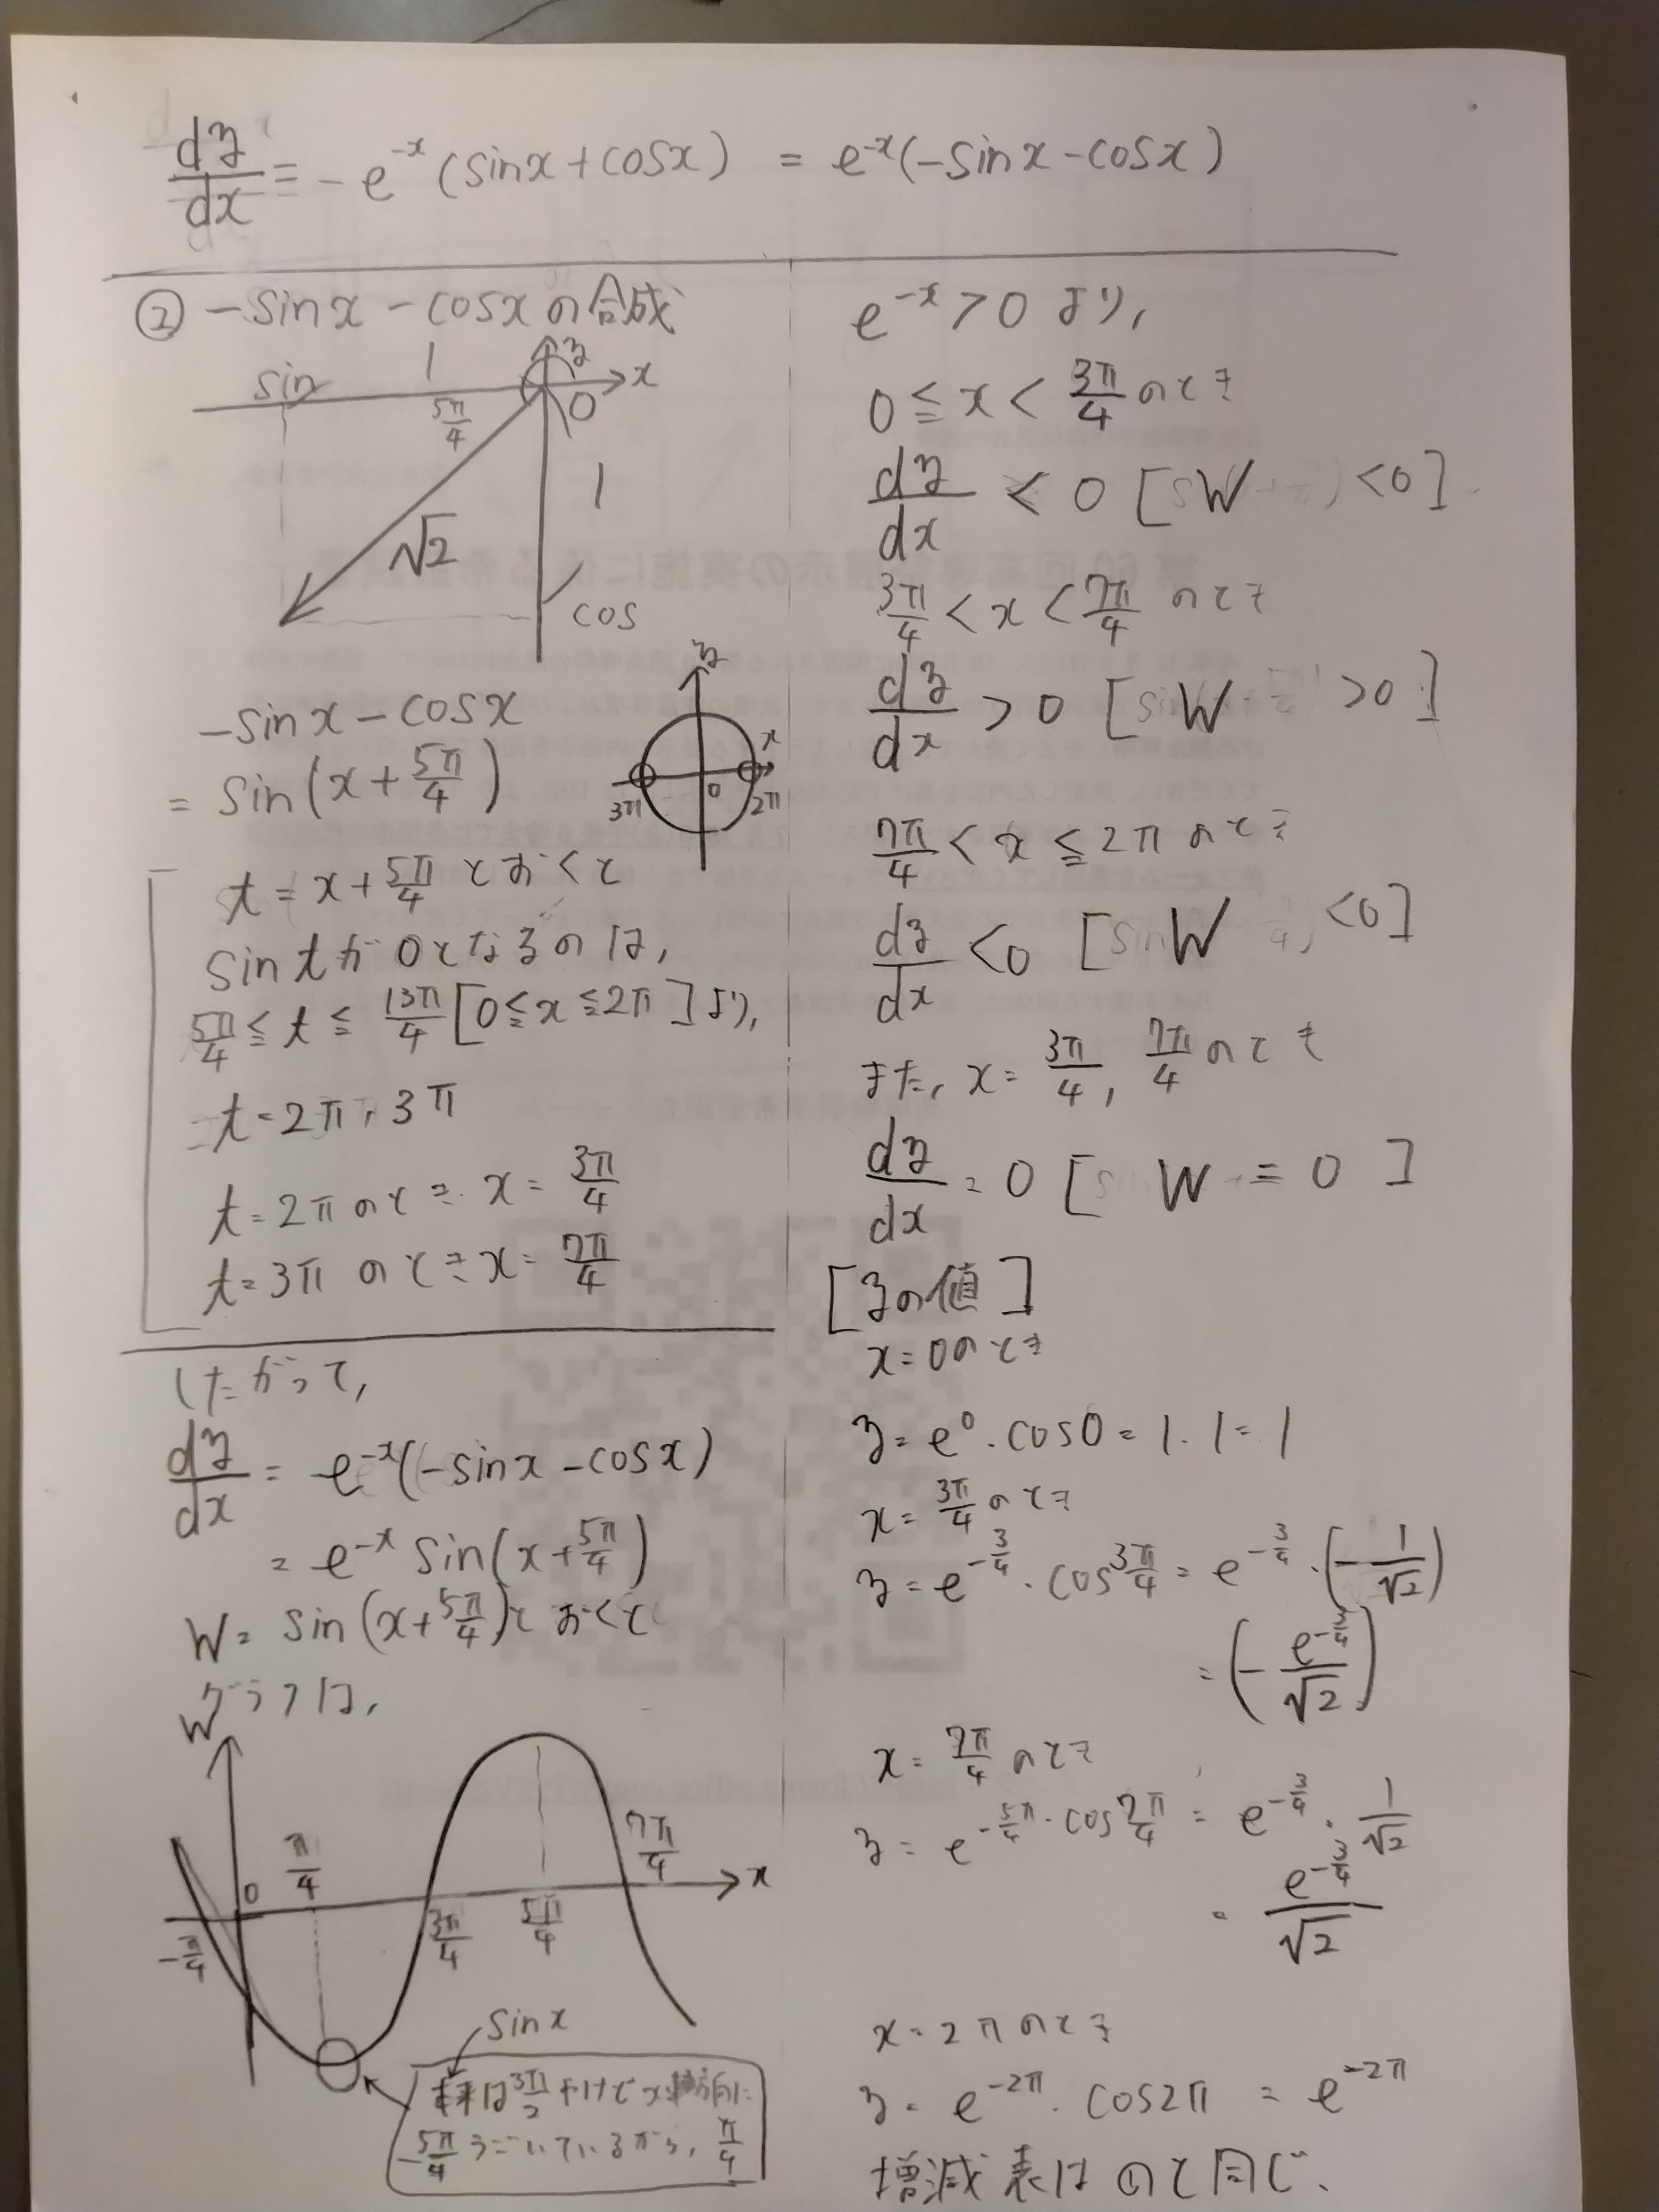 dy/dx = -e^{-x}(sinx+cosx) = e^{-x}(-sinx-cosx)
② -sinx-cosxの合成
sin 1 y x
5π/4 0
1
√2
cos
-sinx-cosx
= sin(x+5π/4)
y x
3π 0 2π
t=x+5π/4とおくと
sintが0となるのは,
5π/4≦t≦13π/4[0≦x≦2π]より,
t=2π, 3π
t=2πのとき x=3π/4
t=3πのとき x=7π/4
したがって,
dy/dx = e^{-x}(-sinx-cosx)
= e^{-x}sin(x+5π/4)
W=sin(x+5π/4)とおくと
グラフは,
W
π/4 7π/4 x
0
-π/4 3π/4 5π/4
sinx
は3π/2だけどx軸方向に
-5π/4ずているから, π/4
e^{-x}>0より,
0≦x<3π/4のとき
dy/dx<0 [W<0]
3π/4<x<7π/4のとき
dy/dx>0 [W>0]
7π/4<x≦2πのとき
dy/dx<0 [W<0]
また, x=3π/4, 7π/4のとき
dy/dx=0 [W=0]
[yの値]
x=0のとき
y=e^0・cos0=1・1=1
x=3π/4のとき
y=e^{-3/4}・cos3π/4=e^{-3/4}・(-1/√2)
=(-e^{-3/4}/√2)
x=7π/4のとき
y=e^{-5π/4}・cos7π/4=e^{-3/4}・1/√2
=e^{-3/4}/√2
x=2πのとき
y=e^{-2π}・cos2π=e^{-2π}
増減表は①と同じ.